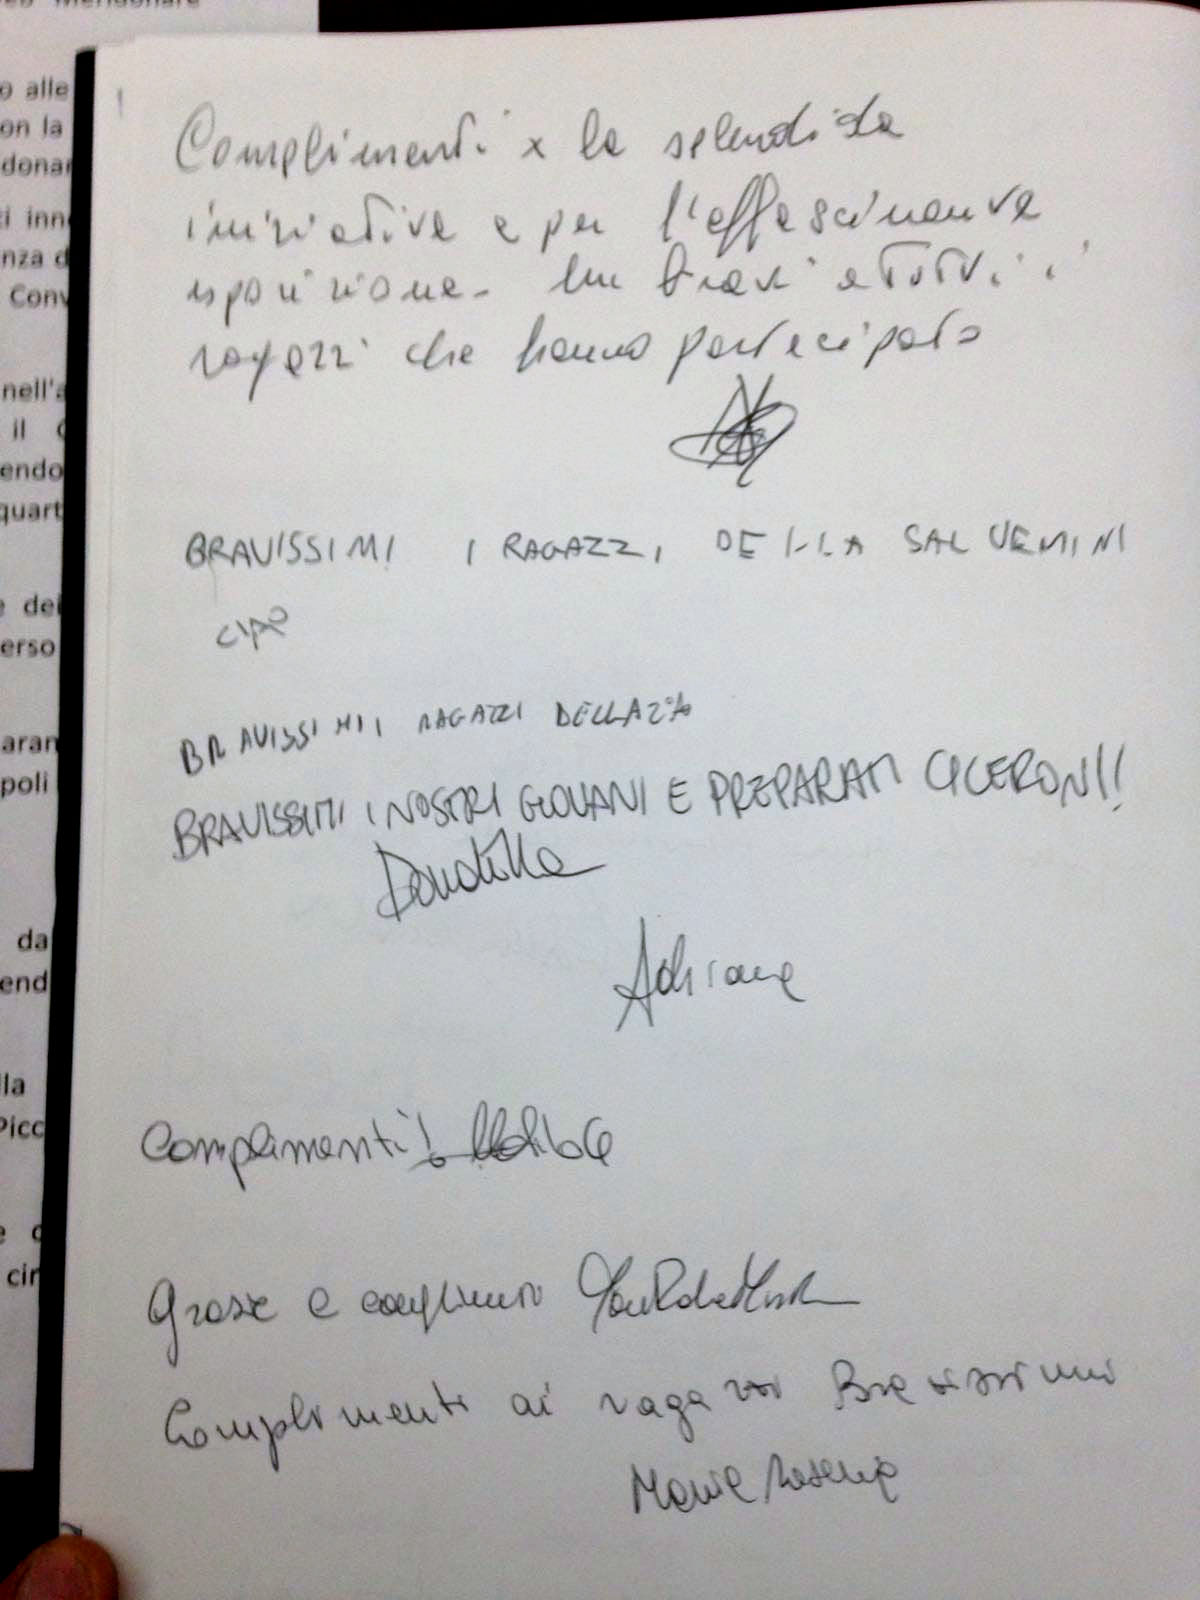 Meridonare
o alle
on la
donar
ti inn
nza d
Conv
nell'a
il
endo
quart
e dei
erso
aran
poli
da
end
lla
Picc
e
cir
Complimenti x la splendida
iniziativa e per l'affascinante
esposizione. Un bravi a tutti i
ragazzi che hanno partecipato
BRAVISSIMI I RAGAZZI DELLA SALVEMINI
CIAO
BRAVISSIMI I RAGAZZI DELLA 2ªA
BRAVISSIMI I NOSTRI GIOVANI E PREPARATI CICERONI!
Donatella
Adriana
Complimenti!
Grazie e complimenti
Complimenti ai ragazzi Bravissimi
Maria